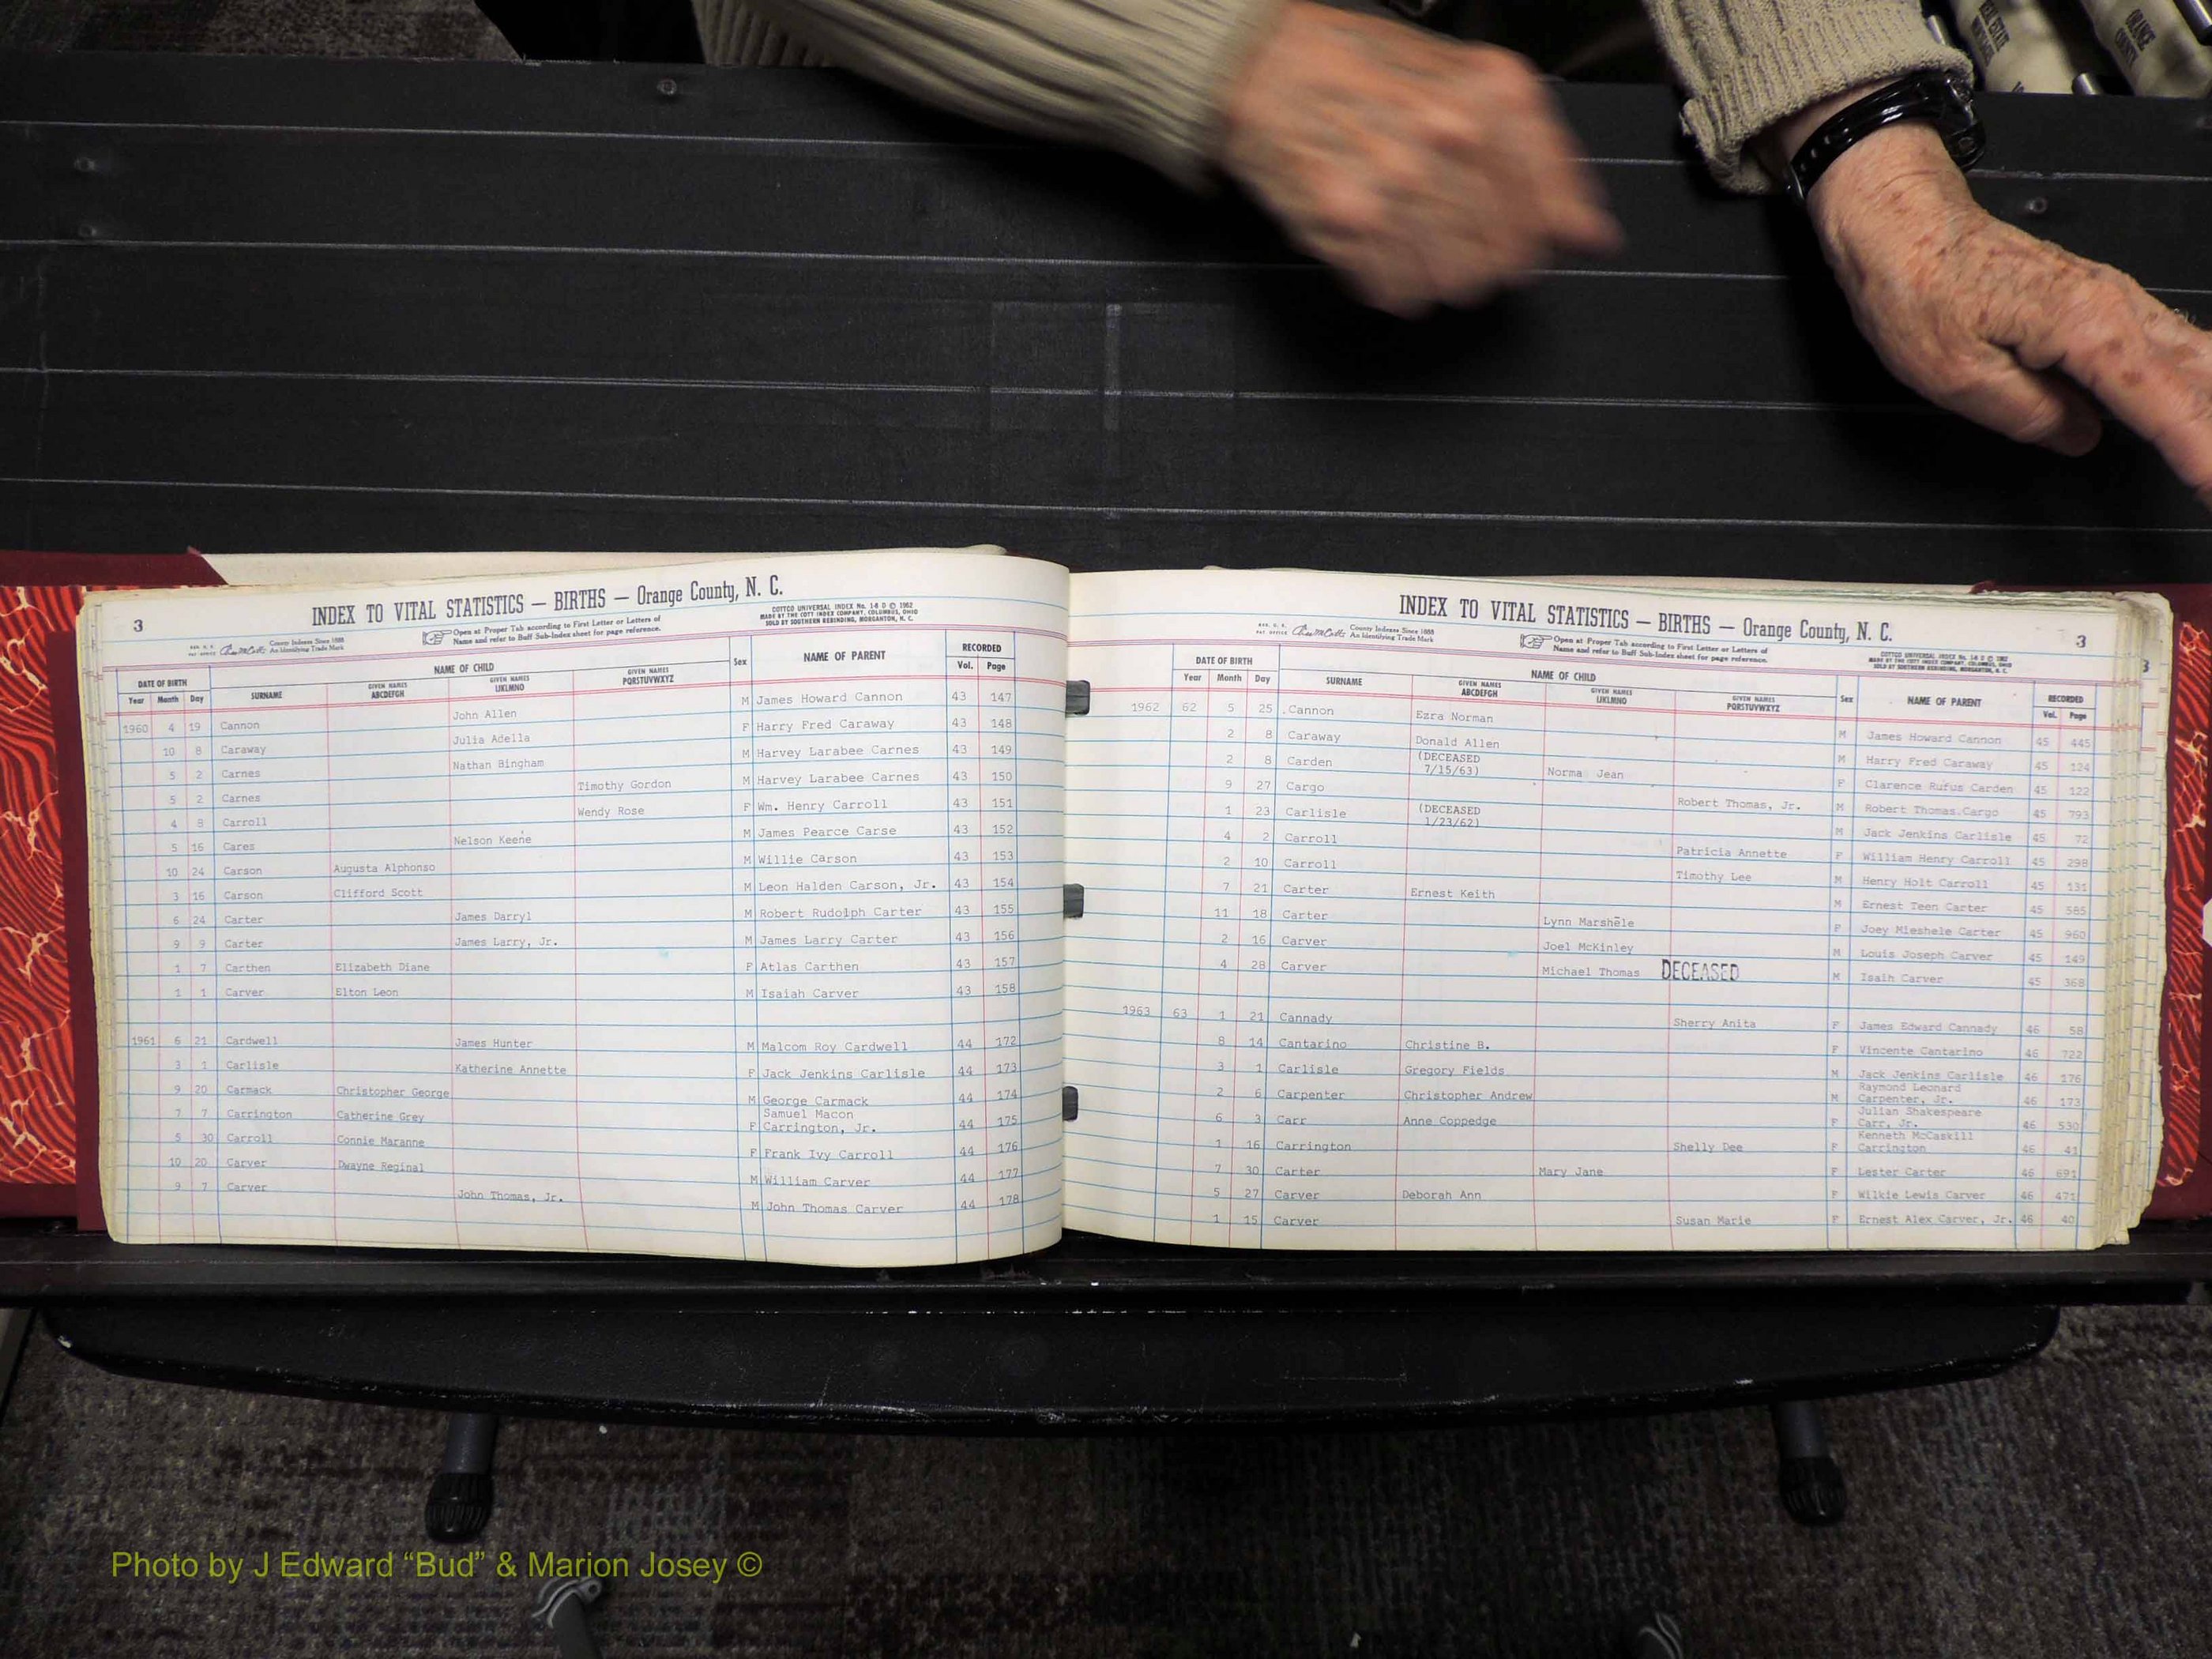 REAL ESTATE
ORANGE COUNTY
3
INDEX TO VITAL STATISTICS — BIRTHS — Orange County, N. C.
COTTCO UNIVERSAL INDEX No. 1-8 D © 1962
MADE BY THE COTT INDEX COMPANY, COLUMBUS, OHIO
SOLD BY SOUTHERN REBINDING, MORGANTON, N. C.
County Indexes Since 1888
An Identifying Trade Mark
Open at Proper Tab according to First Letter or Letters of
Name and refer to Buff Sub-Index sheet for page reference.
DATE OF BIRTH NAME OF CHILD Sex NAME OF PARENT RECORDED
Year Month Day SURNAME GIVEN NAMES ABCDEFGH GIVEN NAMES IJKLMNO GIVEN NAMES PQRSTUVWXYZ Vol. Page
1960 4 19 Cannon John Allen M James Howard Cannon 43 147
10 8 Caraway Julia Adella F Harry Fred Caraway 43 148
5 2 Carnes Nathan Bingham M Harvey Larabee Carnes 43 149
5 2 Carnes Timothy Gordon M Harvey Larabee Carnes 43 150
4 8 Carroll Wendy Rose F Wm. Henry Carroll 43 151
5 16 Cares Nelson Keene M James Pearce Carse 43 152
10 24 Carson Augusta Alphonso M Willie Carson 43 153
3 16 Carson Clifford Scott M Leon Halden Carson, Jr. 43 154
6 24 Carter James Darryl M Robert Rudolph Carter 43 155
9 9 Carter James Larry, Jr. M James Larry Carter 43 156
1 7 Carthen Elizabeth Diane F Atlas Carthen 43 157
1 1 Carver Elton Leon M Isaiah Carver 43 158
1961 6 21 Cardwell James Hunter M Malcom Roy Cardwell 44 172
3 1 Carlisle Katherine Annette F Jack Jenkins Carlisle 44 173
9 20 Carmack Christopher George M George Carmack 44 174
7 7 Carrington Catherine Grey F Samuel Macon Carrington, Jr. 44 175
5 30 Carroll Connie Maranne F Frank Ivy Carroll 44 176
10 20 Carver Dwayne Reginal M William Carver 44 177
9 7 Carver John Thomas, Jr. M John Thomas Carver 44 178
INDEX TO VITAL STATISTICS — BIRTHS — Orange County, N. C.
3
County Indexes Since 1888
An Identifying Trade Mark
Open at Proper Tab according to First Letter or Letters of
Name and refer to Buff Sub-Index sheet for page reference.
COTTCO UNIVERSAL INDEX No. 1-8 D © 1962
MADE BY THE COTT INDEX COMPANY, COLUMBUS, OHIO
SOLD BY SOUTHERN REBINDING, MORGANTON, N. C.
DATE OF BIRTH NAME OF CHILD Sex NAME OF PARENT RECORDED
Year Month Day SURNAME GIVEN NAMES ABCDEFGH GIVEN NAMES IJKLMNO GIVEN NAMES PQRSTUVWXYZ Vol. Page
1962 62 5 25 Cannon Ezra Norman M James Howard Cannon 45 445
2 8 Caraway Donald Allen M Harry Fred Caraway 45 124
2 8 Carden (DECEASED 7/15/63) Norma Jean F Clarence Rufus Carden 45 122
9 27 Cargo Robert Thomas, Jr. M Robert Thomas Cargo 45 793
1 23 Carlisle (DECEASED 1/23/62) M Jack Jenkins Carlisle 45 72
4 2 Carroll Patricia Annette F William Henry Carroll 45 298
2 10 Carroll Timothy Lee M Henry Holt Carroll 45 131
7 21 Carter Ernest Keith M Ernest Teen Carter 45 585
11 18 Carter Lynn Marshele F Joey Mieshele Carter 45 960
2 16 Carver Joel McKinley M Louis Joseph Carver 45 149
4 28 Carver Michael Thomas DECEASED M Isaih Carver 45 368
1963 63 1 21 Cannady Sherry Anita F James Edward Cannady 46 58
8 14 Cantarino Christine B. F Vincente Cantarino 46 722
3 1 Carlisle Gregory Fields M Jack Jenkins Carlisle 46 176
2 6 Carpenter Christopher Andrew M Raymond Leonard Carpenter, Jr. 46 173
6 3 Carr Anne Coppedge F Julian Shakespeare Carr, Jr. 46 530
1 16 Carrington Shelly Dee F Kenneth McCaskill Carrington 46 41
7 30 Carter Mary Jane F Lester Carter 46 691
5 27 Carver Deborah Ann F Wilkie Lewis Carver 46 471
1 15 Carver Susan Marie F Ernest Alex Carver, Jr. 46 40
Photo by J Edward “Bud” & Marion Josey ©